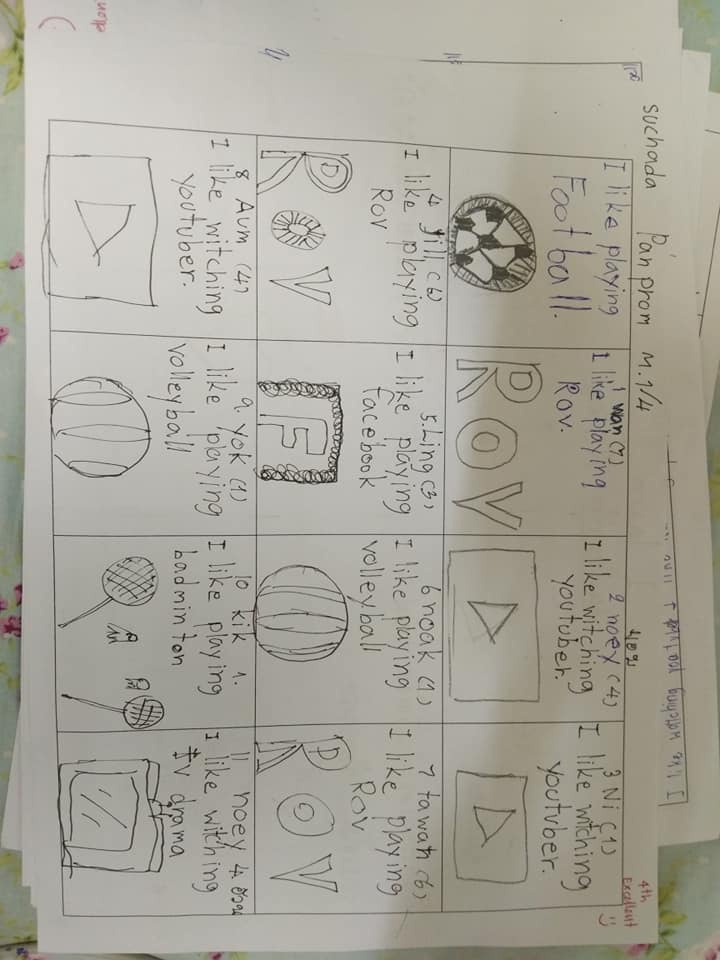 suchada Panprom M.1/4
4th
Excellent
I like playing
Football.
1 wan (7)
I like playing
Rov.
ROV
2 noey (4)
I like witching
youtuber.
3 Ni (1)
I like witching
youtuber.
4 Jill (6)
I like playing
Rov
ROV
5. Ling (3)
I like playing
facebook
F
6 noak (1)
I like playing
volleyball
7 tawan (6)
I like playing
Rov
ROV
8 Aum (4)
I like witching
youtuber.
9. yok (1)
I like playing
volleyball
10 kik 1.
I like playing
badminton
11 noey 4
I like witching
TV drama